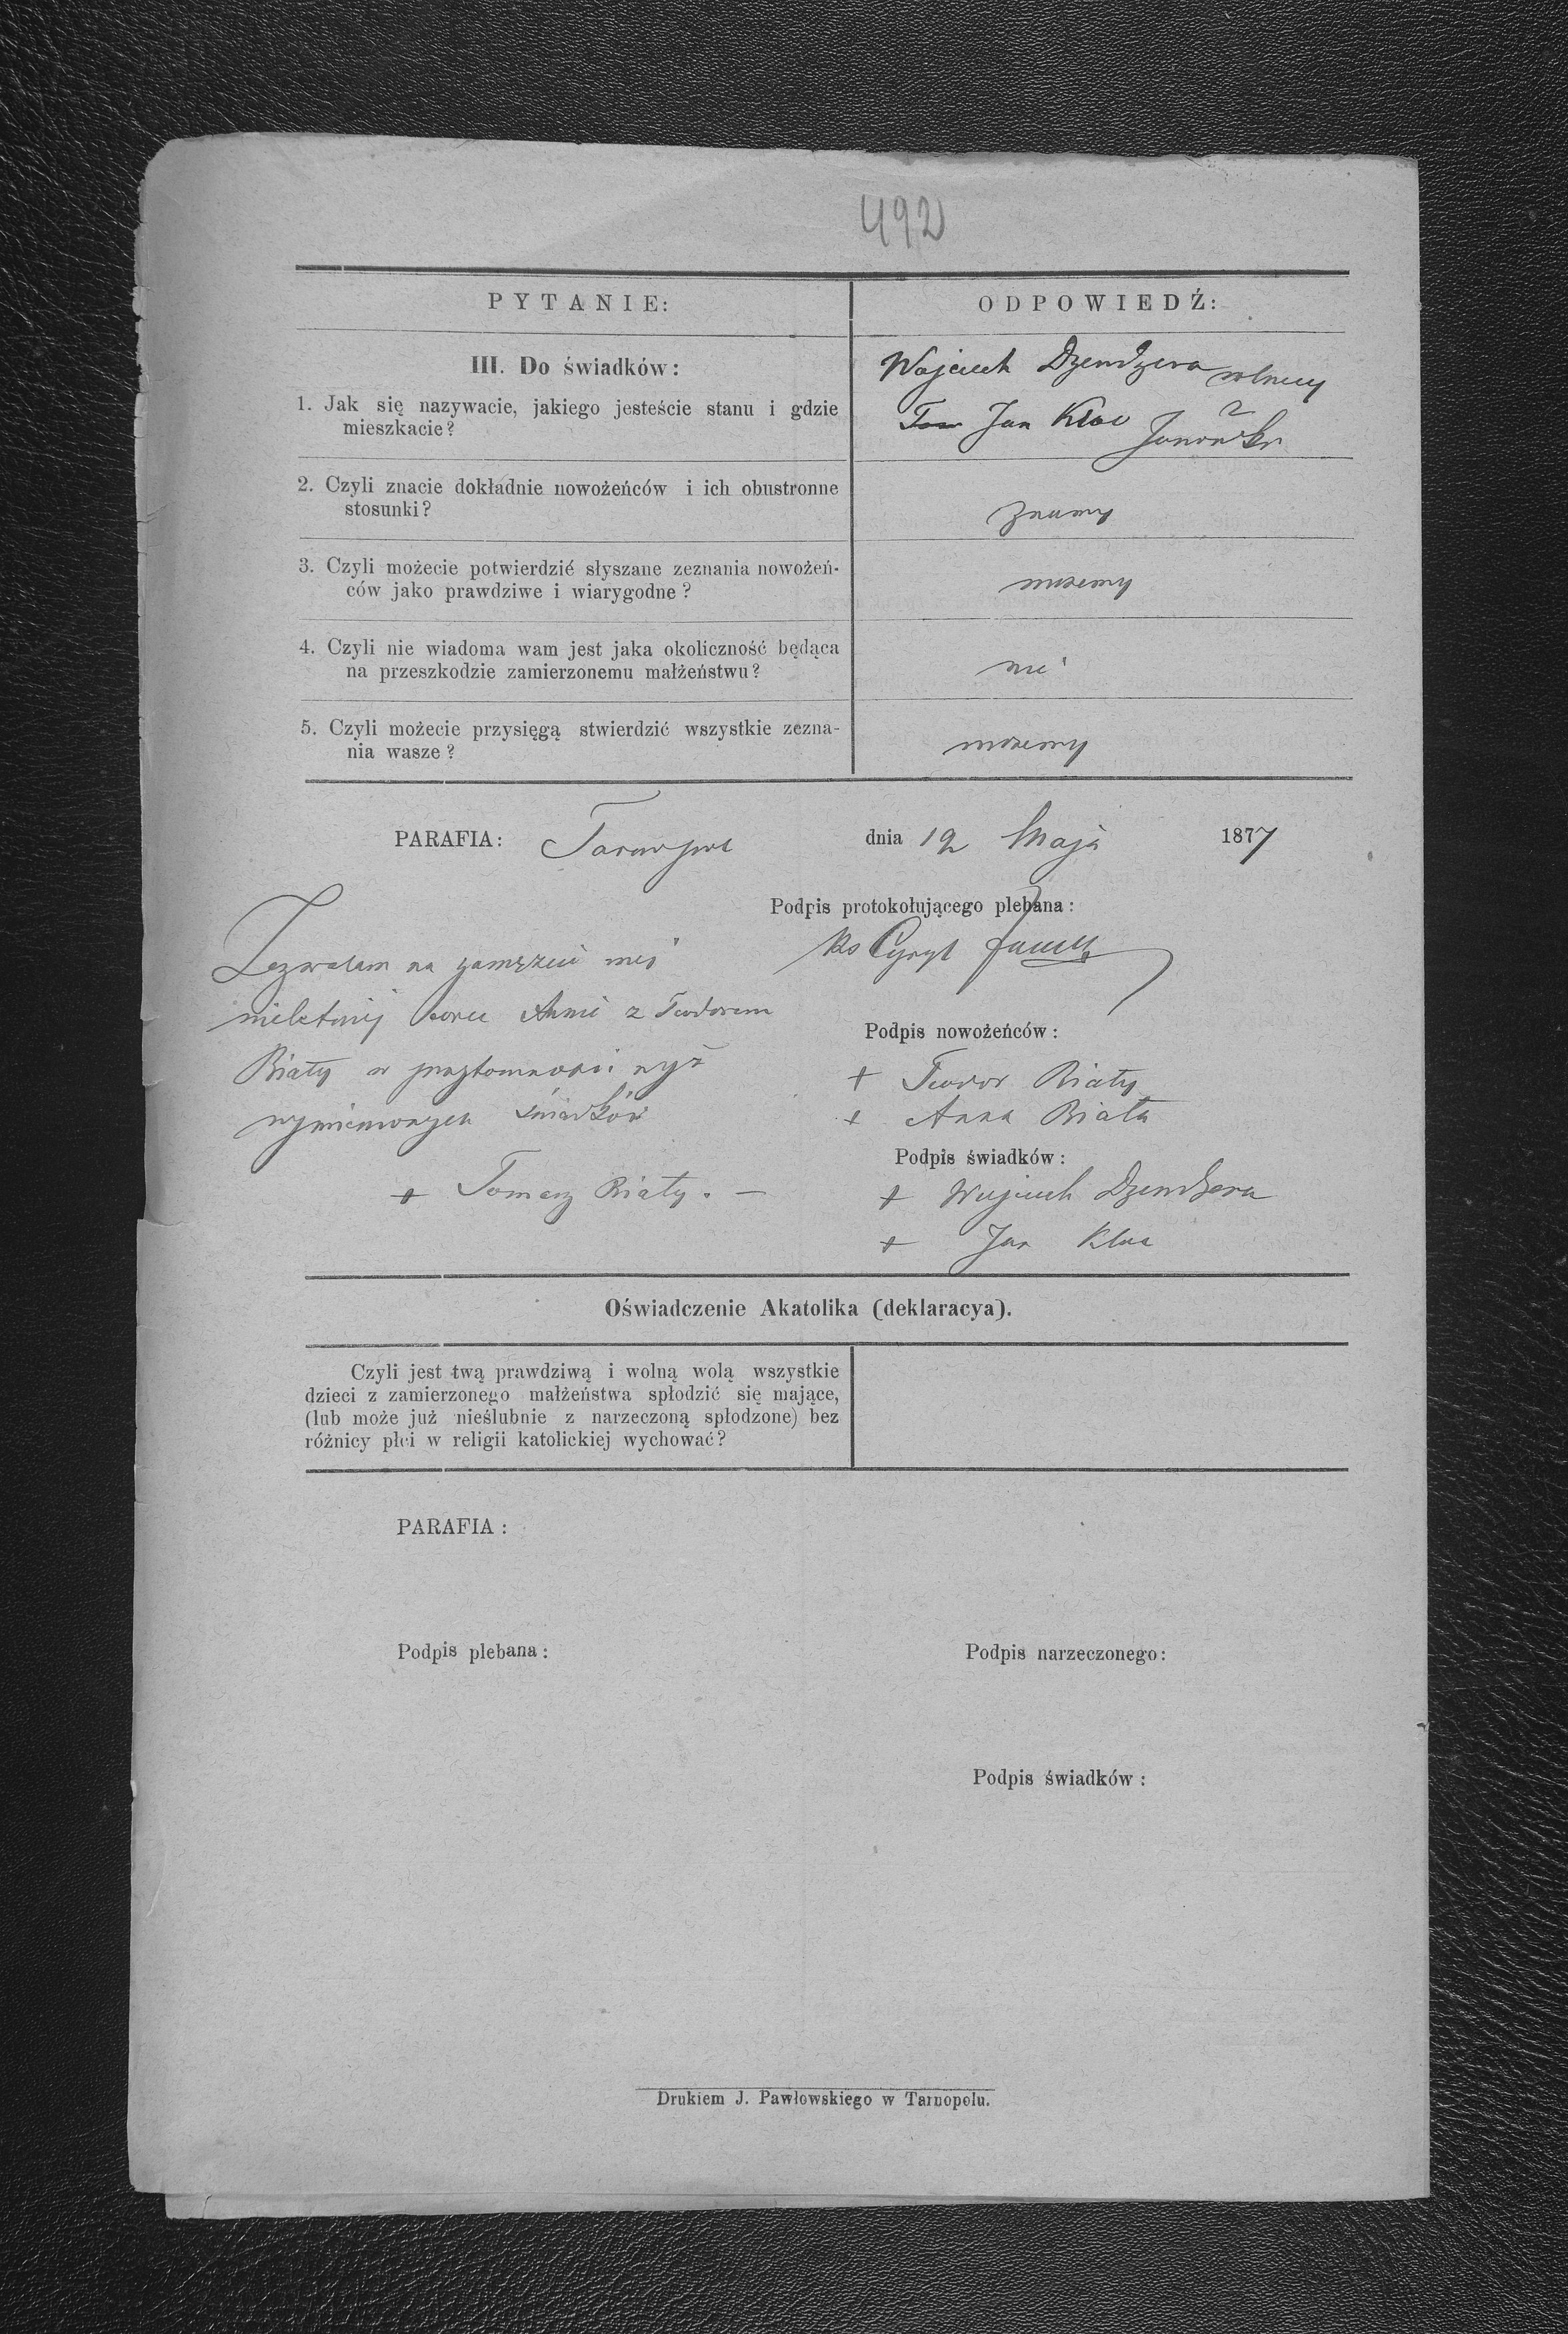 492
PYTANIE:
ODPOWIEDŹ:
III. Do świadków:
1. Jak się nazywacie, jakiego jesteście stanu i gdzie
mieszkacie?
Wojciech Dzendzera rolnicy
Jan Kloc z Janówki
2. Czyli znacie dokładnie nowożeńców i ich obustronne
stosunki?
znamy
3. Czyli możecie potwierdzić słyszane zeznania nowożeń-
ców jako prawdziwe i wiarygodne?
możemy
4. Czyli nie wiadoma wam jest jaka okoliczność będąca
na przeszkodzie zamierzonemu małżeństwu?
nie
5. Czyli możecie przysięgą stwierdzić wszystkie zezna-
nia wasze?
możemy
PARAFIA:
dnia 12 Maja 1877
Podpis protokołującego plebana:
Ks Cyryl
Zezwalam na zamęście mej
nieletniej corce Annie z Teodorem
Biały w przytomności wyż
wymienionych świadków
+ Tomasz Biały. —
Podpis nowożeńców:
+ Teodor Biały
+ Anna Biała
Podpis świadków:
+ Wojciech Dzendzera
+ Jan Kloc
Oświadczenie Akatolika (deklaracya).
Czyli jest twą prawdziwą i wolną wolą wszystkie
dzieci z zamierzonego małżeństwa spłodzić się mające,
(lub może już nieślubnie z narzeczoną spłodzone) bez
różnicy płci w religii katolickiej wychować?
PARAFIA:
Podpis plebana:
Podpis narzeczonego:
Podpis świadków:
Drukiem J. Pawłowskiego w Tarnopolu.